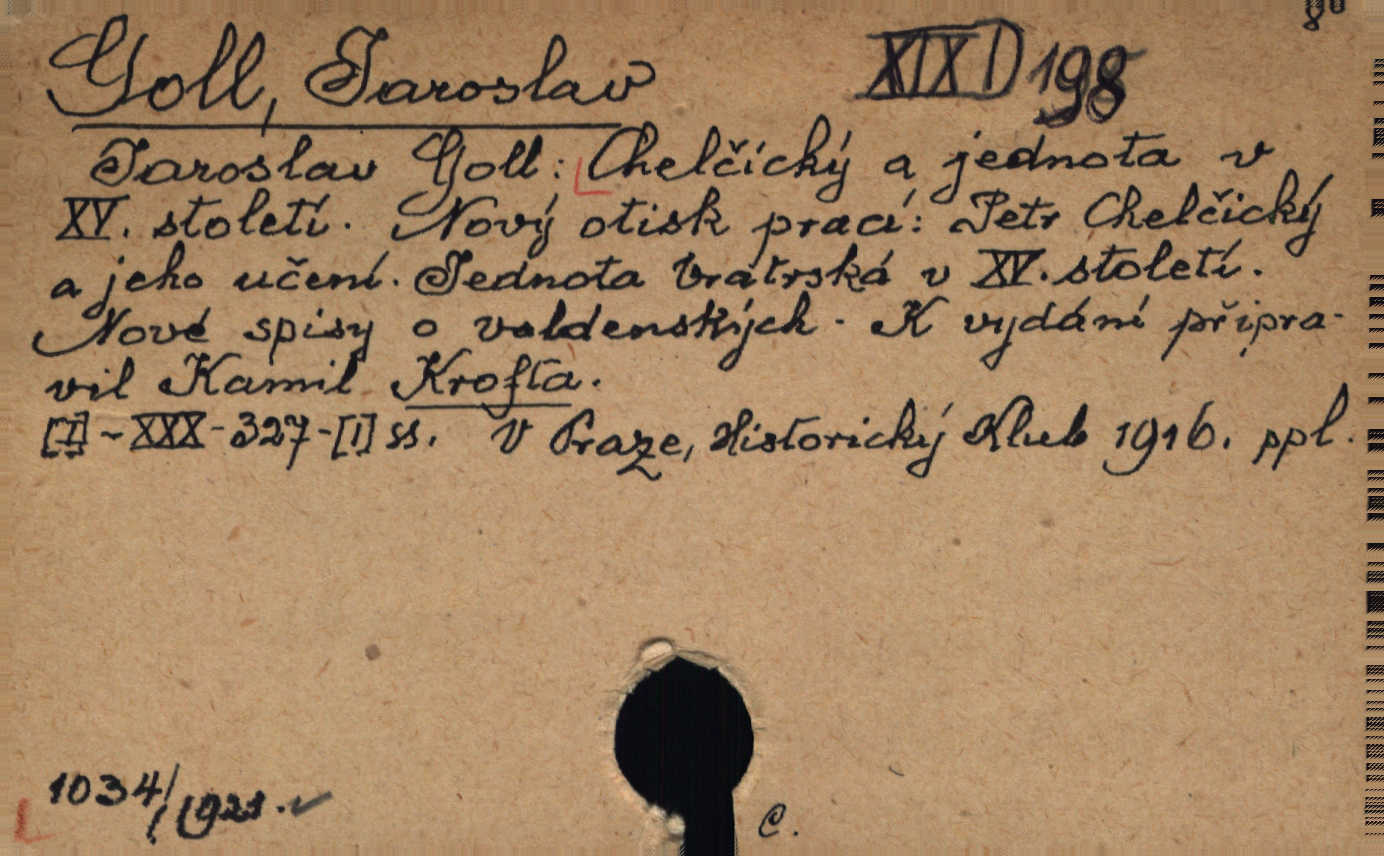 8°
Goll, Jaroslav
XIX D 198
Jaroslav Goll: Chelčický a jednota v
XV. století. Nový otisk prací: Petr Chelčický
a jeho učení. Jednota bratrská v XV. století.
Nové spisy o valdenských. K vydání připra-
vil Kamil Krofta.
[I]-XXX-327-[I] ss. V Praze, Historický Klub 1916. ppl.
1034/1921.
C.